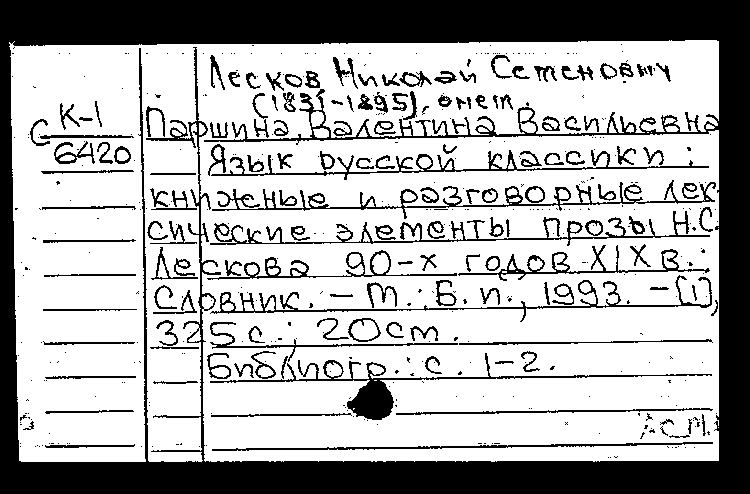 Лесков Николай Семенович
(1831-1895), о нем.
Паршина, Валентина Васильевна
С К-1
6420
Язык русской классики:
книжные и разговорные лек-
сические элементы прозы Н.С.
Лескова 90-х годов XIX в.:
Словник. – М.: Б. и., 1993. – [1],
325 с.; 20 см.
Библиогр.: с. 1-2.